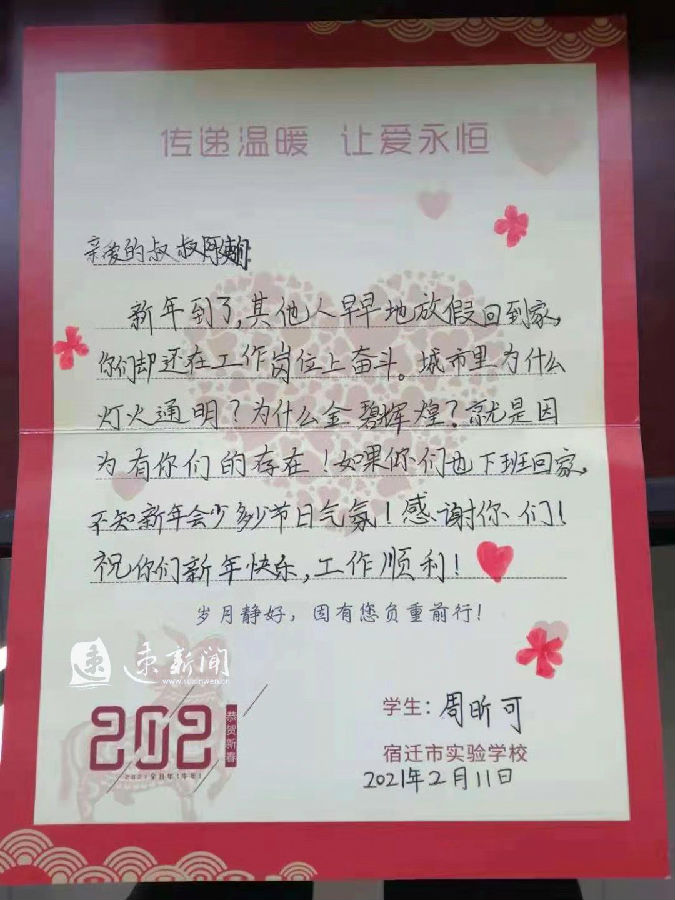 传递温暖 让爱永恒
亲爱的叔叔阿姨们:
新年到了,其他人早早地放假回到家,
你们却还在工作岗位上奋斗。城市里为什么
灯火通明?为什么金碧辉煌?就是因
为有你们的存在!如果你们也下班回家,
不知新年会少多少节日气氛!感谢你们!
祝你们新年快乐,工作顺利!
岁月静好,因有您负重前行!
速新闻
www.suxinwen.cn
2021
恭贺新春
学生:周昕可
宿迁市实验学校
2021年2月11日